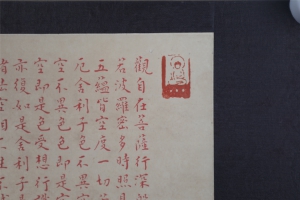 觀自在菩薩行深般
若波羅蜜多時照見
五蘊皆空度一切苦
厄舍利子色不異空
空不異色色即是空
空即是色受想行識
亦復如是舍利子是
空相不生不